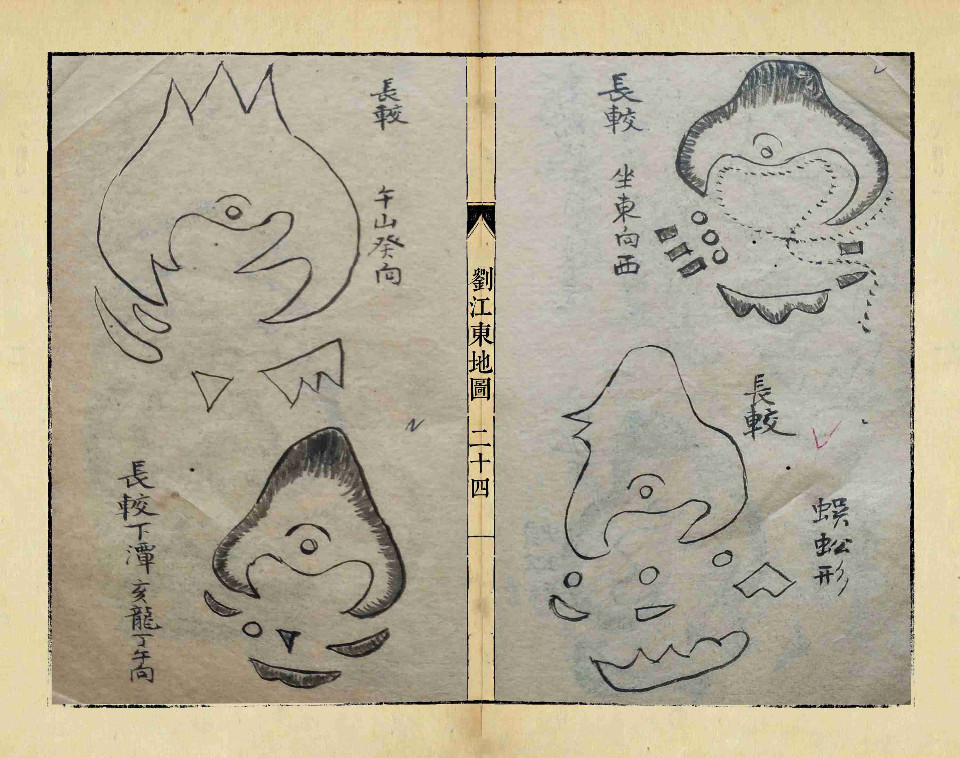 長較
坐東向西
長較
蜈蚣形
劉江東地圖 二十四
長較
午山癸向
長較下潭亥龍丁午向